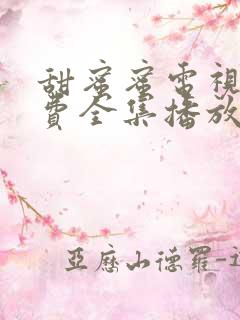 甜蜜蜜電視
費全集播放
亞歷山德羅-